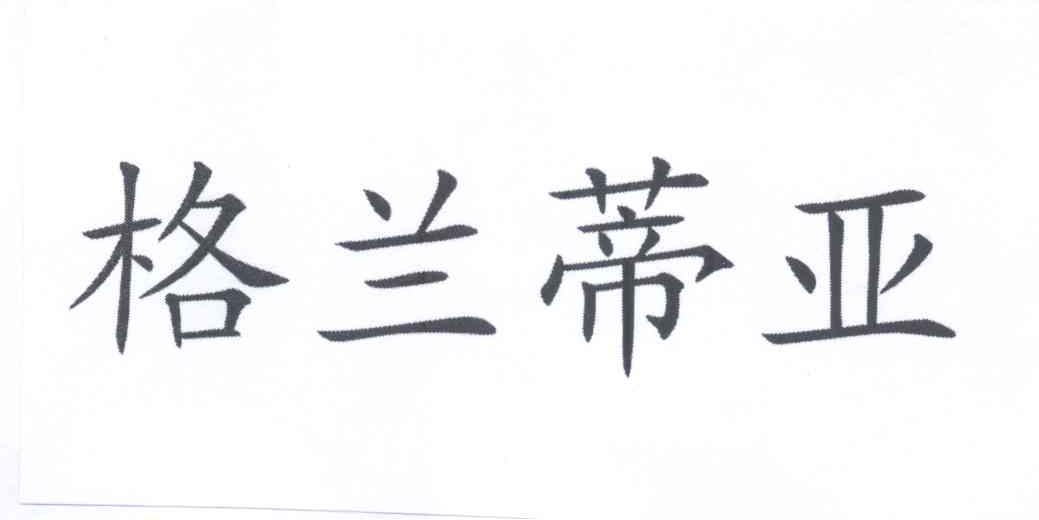 格兰蒂亚